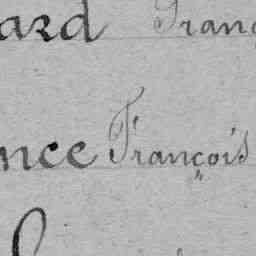 ard Franç
nce François